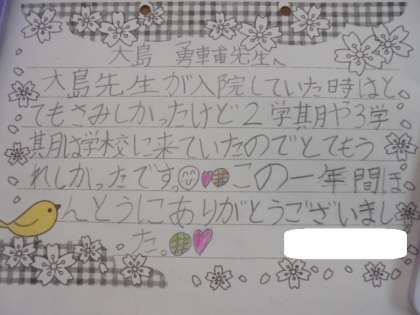 大島 勇車甫先生へ
大島先生が入院していた時はと
てもさみしかったけど2学其月や3学
其月は学校に来ていたのでとてもう
れしかったです。この一年間ほ
んとうにありがとうございまし
た。